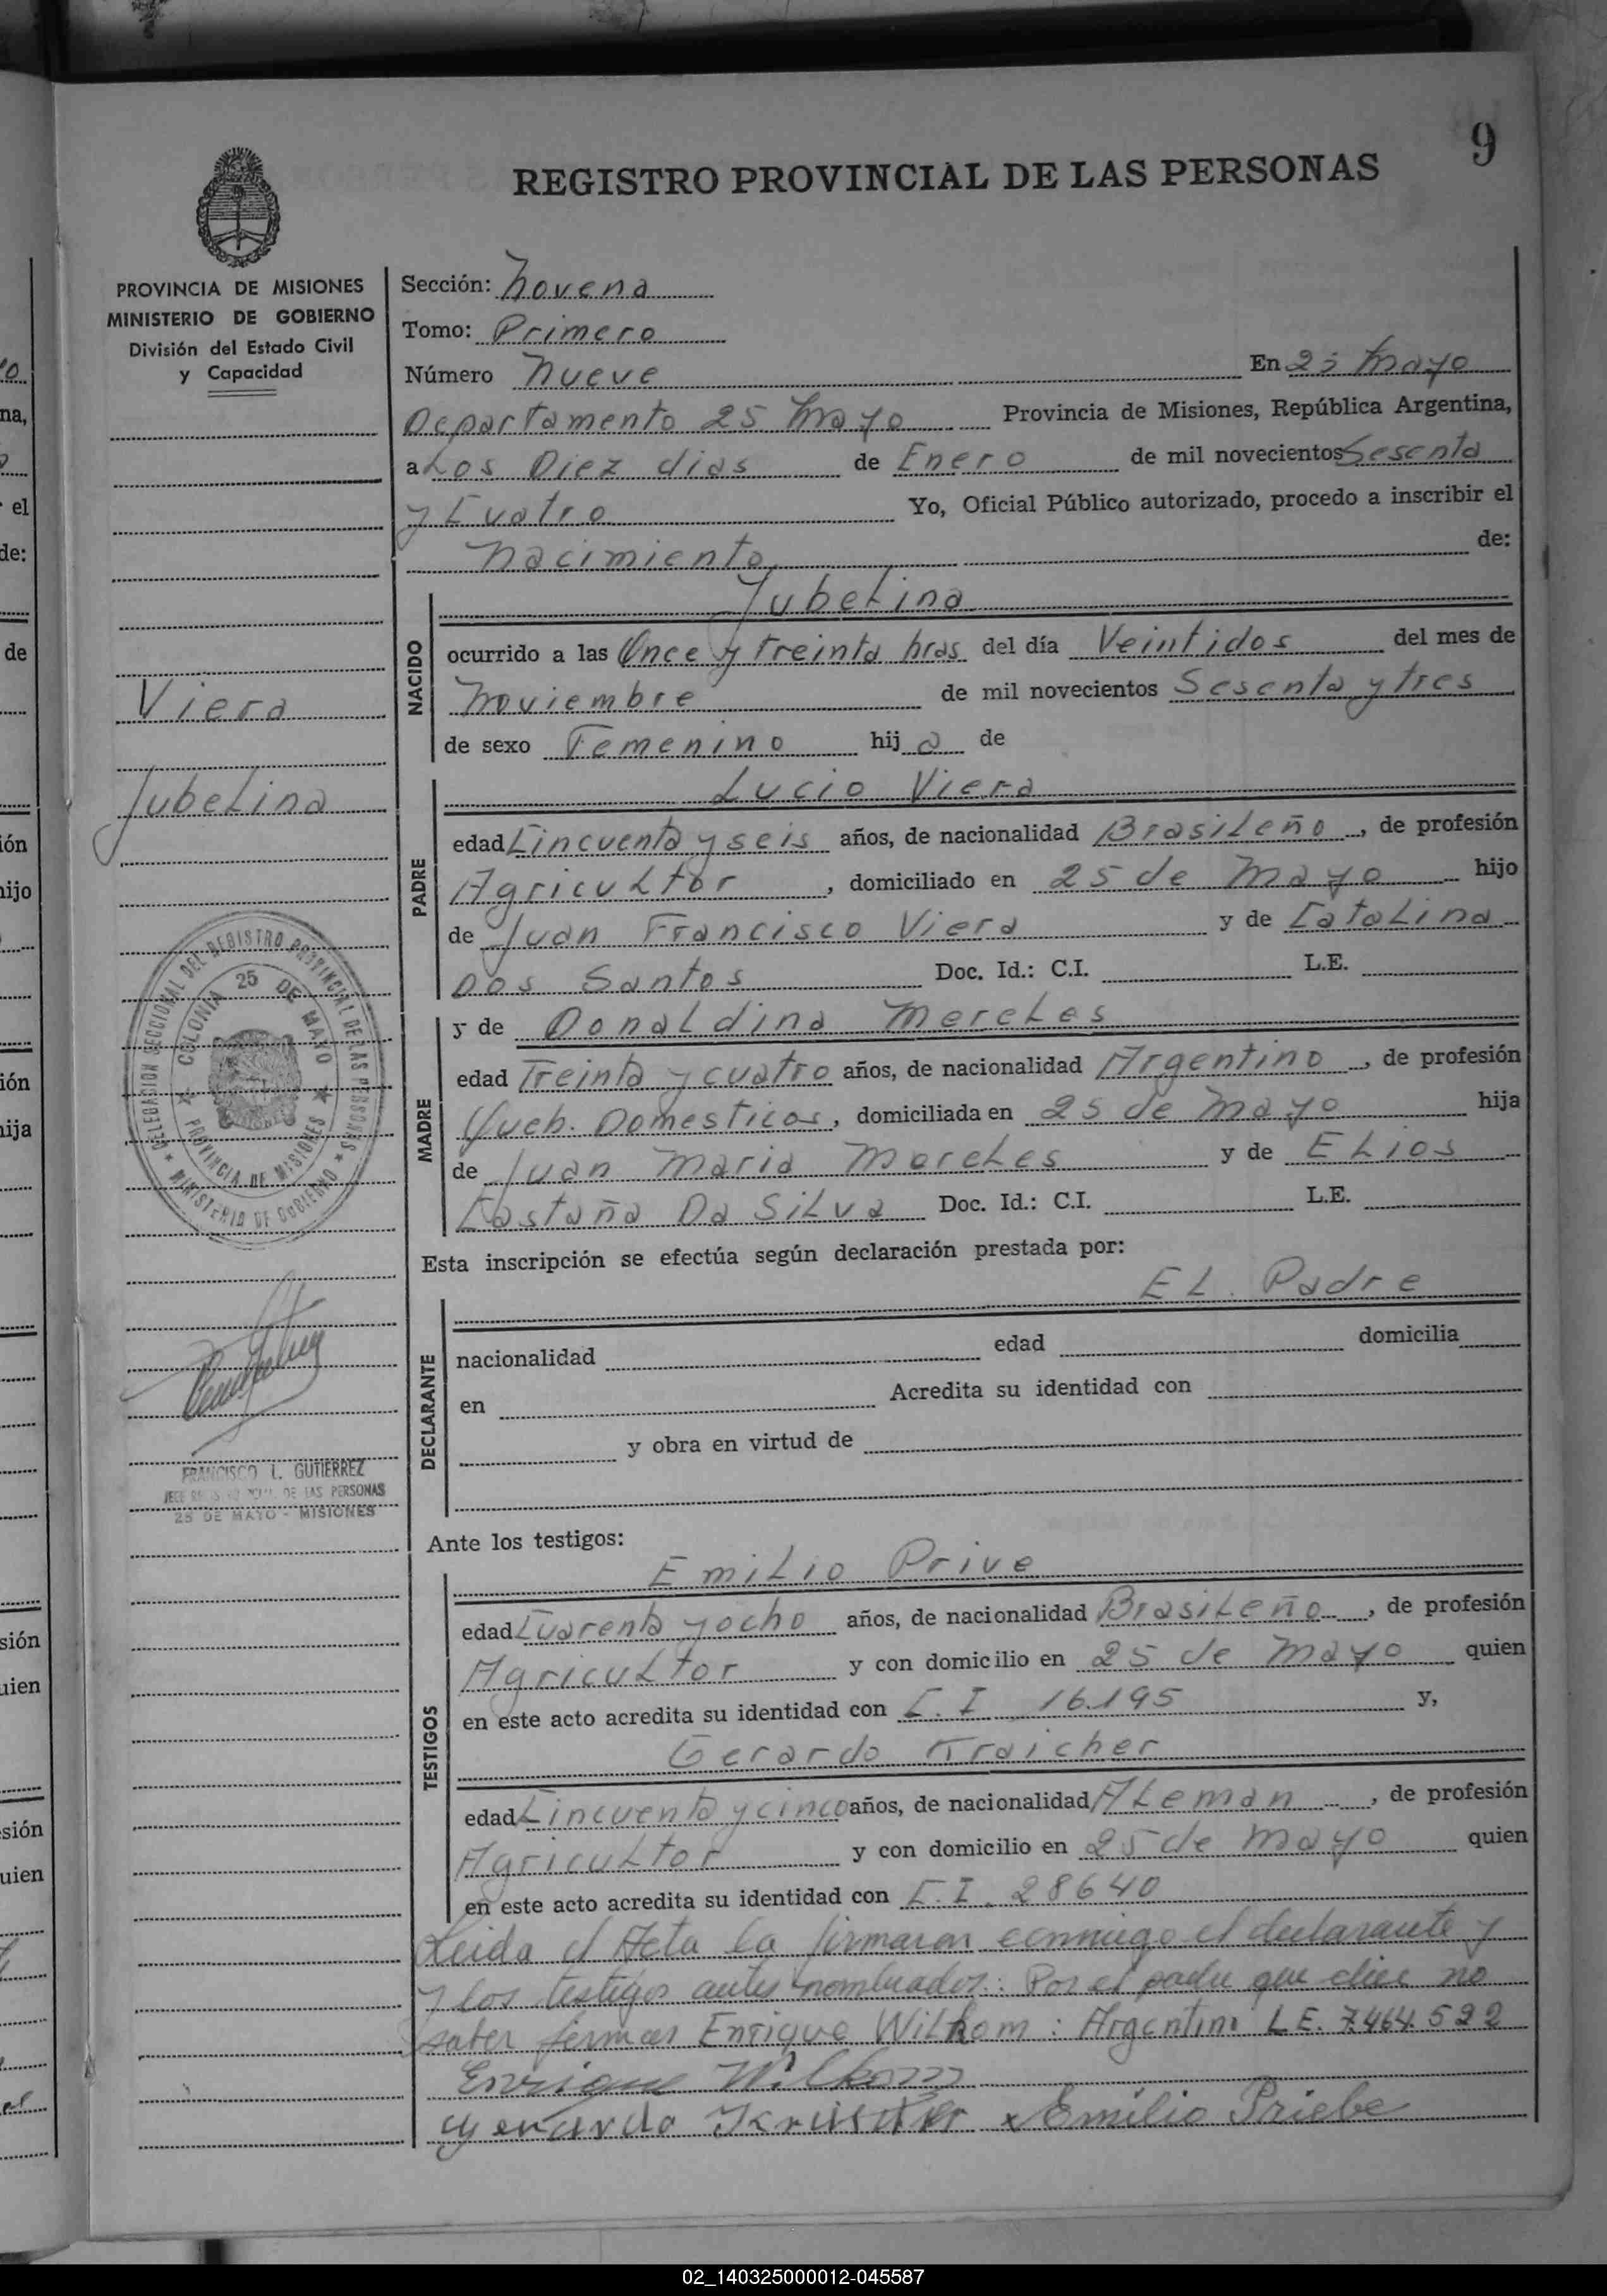 9
REGISTRO PROVINCIAL DE LAS PERSONAS
PROVINCIA DE MISIONES
MINISTERIO DE GOBIERNO
División del Estado Civil
y Capacidad
Viera
Jubelina
DELEGACION SECCIONAL DEL REGISTRO PROVINCIAL DE LAS PERSONAS
MINISTERIO DE GOBIERNO
COLONIA 25 DE MAYO
PROVINCIA DE MISIONES
FRANCISCO I. GUTIERREZ
DE LAS PERSONAS
25 DE MAYO - MISIONES
Sección: Novena
Tomo: Primero
Número Nueve En 25 Mayo
Departamento 25 Mayo Provincia de Misiones, República Argentina,
a Los Diez dias de Enero de mil novecientos Sesenta
y Cuatro Yo, Oficial Público autorizado, procedo a inscribir el
Nacimiento de:
NACIDO
Jubelina
ocurrido a las Once y treinta hras del día Veintidos del mes de
Noviembre de mil novecientos Sesenta y tres
de sexo Femenino hija de
PADRE
Lucio Viera
edad Cincuenta y seis años, de nacionalidad Brasileño, de profesión
Agricultor, domiciliado en 25 de Mayo hijo
de Juan Francisco Viera y de Catalina
Dos Santos Doc. Id.: C.I. L.E.
MADRE
y de Donaldina Mereles
edad Treinta y cuatro años, de nacionalidad Argentino, de profesión
Queh. Domesticos, domiciliada en 25 de Mayo hija
de Juan Maria Moreles y de Elios
Castaña Da Silva Doc. Id.: C.I. L.E.
Esta inscripción se efectúa según declaración prestada por:
DECLARANTE
El Padre
nacionalidad edad domicilia
en Acredita su identidad con
y obra en virtud de
Ante los testigos:
TESTIGOS
Emilio Prive
edad Cuarenta y ocho años, de nacionalidad Brasileño, de profesión
Agricultor y con domicilio en 25 de Mayo quien
en este acto acredita su identidad con C.I 16.195 y,
Gerardo Kraicher
edad Cincuenta y cinco años, de nacionalidad Aleman, de profesión
Agricultor y con domicilio en 25 de Mayo quien
en este acto acredita su identidad con C.I. 28640
Leida el Acta la firmaron conmigo el declarante y
y los testigos antes nombrados: Por el padre que dice no
saber firmar Enrique Wilkom: Argentino L.E. 7.464.522
Enrique Wilkom
Gerardo x Emilio Priebe
02_140325000012-045587